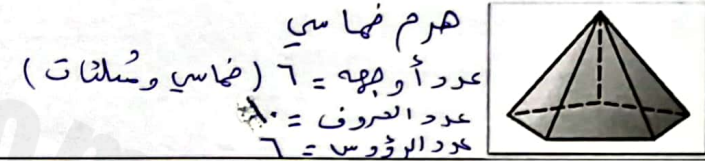 هرم خماسي
عدد أوجهه = ٦ (خماسي ومثلثات)
عدد الحروف = ١٠
عدد الرؤوس = ٦